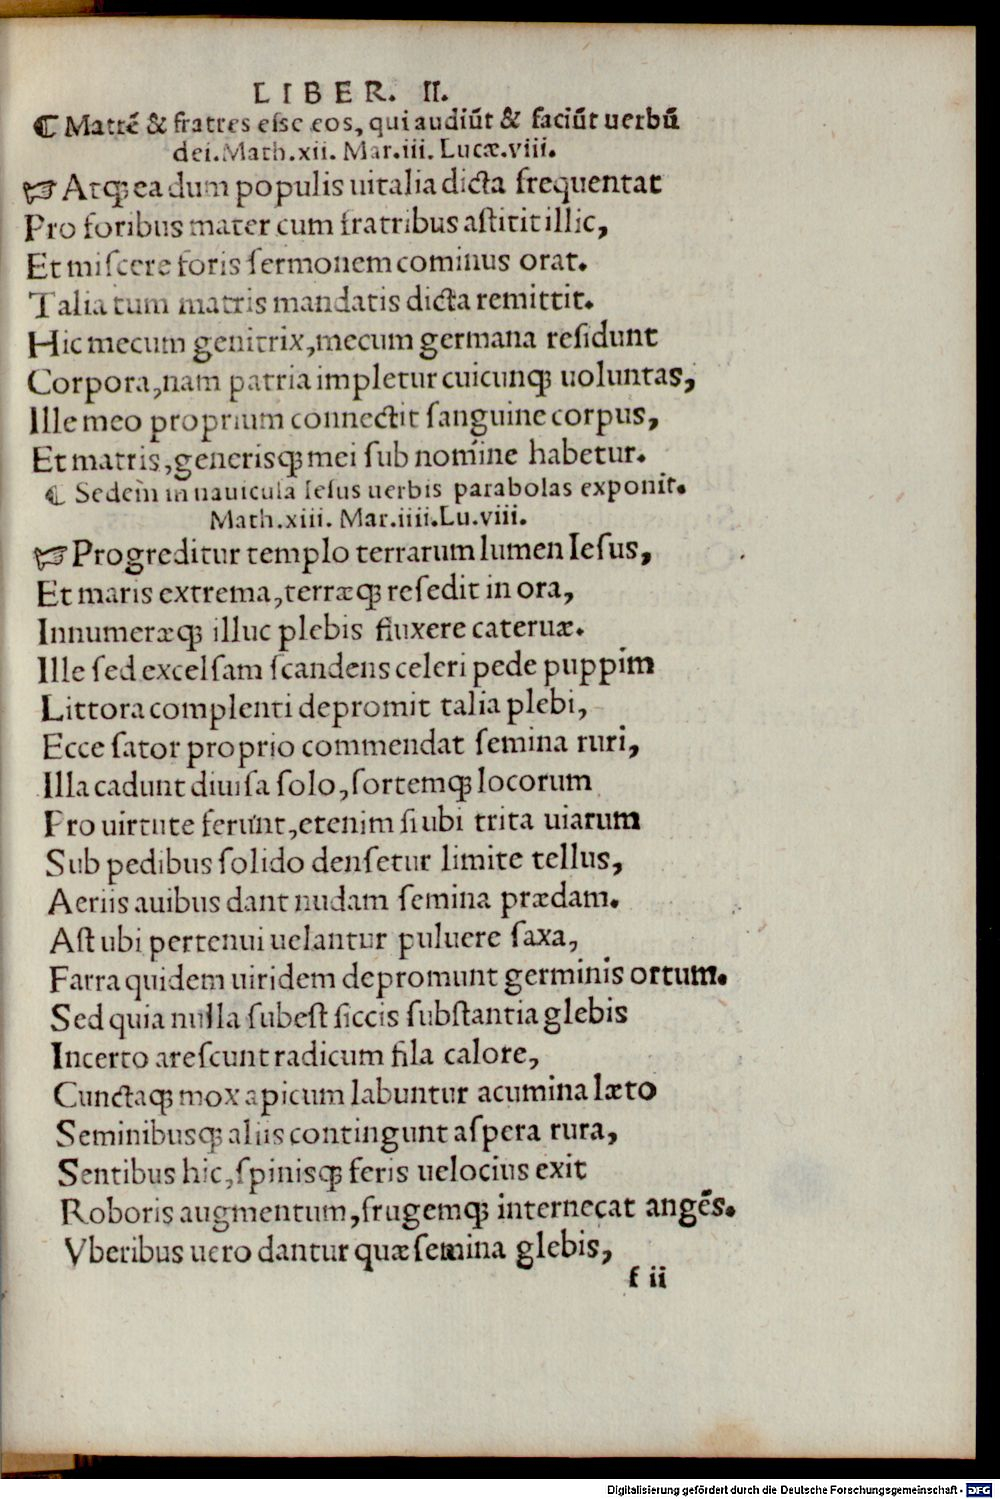 LIBER. II.
¶ Matrē & fratres esse eos, qui audiūt & faciūt uerbū
dei. Math.xii. Mar.iii. Lucæ.viii.
☞ Atq; ea dum populis uitalia dicta frequentat
Pro foribus mater cum fratribus astitit illic,
Et miscere foris sermonem cominus orat.
Talia tum matris mandatis dicta remittit.
Hic mecum genitrix, mecum germana residunt
Corpora, nam patria impletur cuicunq; uoluntas,
Ille meo proprium connectit sanguine corpus,
Et matris, generisq; mei sub nomine habetur.
¶ Sedem in nauicula Iesus uerbis parabolas exponit.
Math.xiii. Mar.iiii. Lu.viii.
☞ Progreditur templo terrarum lumen Iesus,
Et maris extrema, terræq; resedit in ora,
Innumeræq; illuc plebis fluxere cateruæ.
Ille sed excelsam scandens celeri pede puppim
Littora complenti depromit talia plebi,
Ecce sator proprio commendat semina ruri,
Illa cadunt diuisa solo, sortemq; locorum
Pro uirtute ferunt, etenim si ubi trita uiarum
Sub pedibus solido densetur limite tellus,
Aeriis auibus dant nudam semina prædam.
Ast ubi pertenui uelantur puluere saxa,
Farra quidem uiridem depromunt germinis ortum.
Sed quia nulla subest siccis substantia glebis
Incerto arescunt radicum fila calore,
Cunctaq; mox apicum labuntur acumina læto
Seminibusq; aliis contingunt aspera rura,
Sentibus hic, spinisq; feris uelocius exit
Roboris augmentum, frugemq; internecat angēs.
Vberibus uero dantur quæ semina glebis,
f ii
Digitalisierung gefördert durch die Deutsche Forschungsgemeinschaft - DFG